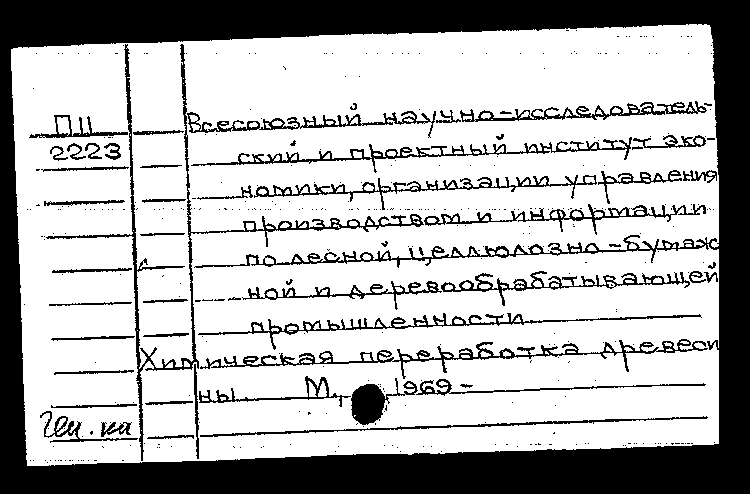 П11 Всесоюзный научно-исследователь-
2223 ский и проектный институт эко-
номики, организации управления
производством и информации
по лесной, целлюлозно-бумаж
ной и деревообрабатывающей
промышленности.
Химическая переработка древеси
ны. М., 1969-
Ген. ка